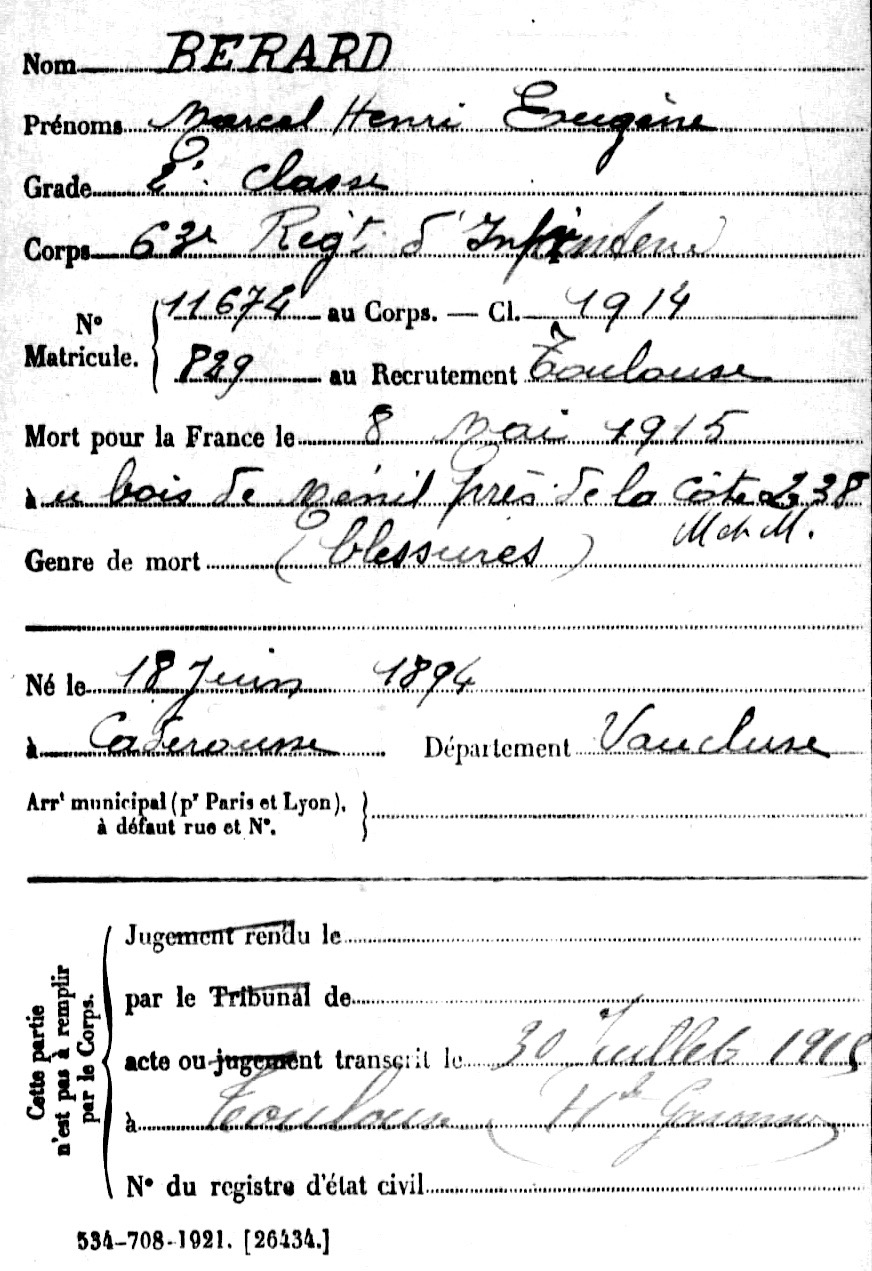 Nom BERARD
Prénoms Marcel Henri Eugène
Grade 2e classe
Corps 63e Regt d'Infanterie
N° Matricule. { 11674 au Corps. — Cl. 1914
829 au Recrutement Toulouse
Mort pour la France le 8 Mai 1915
à u bois de Ménil près de la côte 238
M et M.
Genre de mort (blessures)
Né le 18 Juin 1894
à Caderousse Département Vaucluse
Arrt municipal (pr Paris et Lyon), }
à défaut rue et N°.
Cette partie n'est pas à remplir par le Corps.
Jugement rendu le
par le Tribunal de
acte ou jugement transcrit le 30 Juillet 1915
à Toulouse (Hte Garonne)
N° du registre d'état civil
534-708-1921. [26434.]